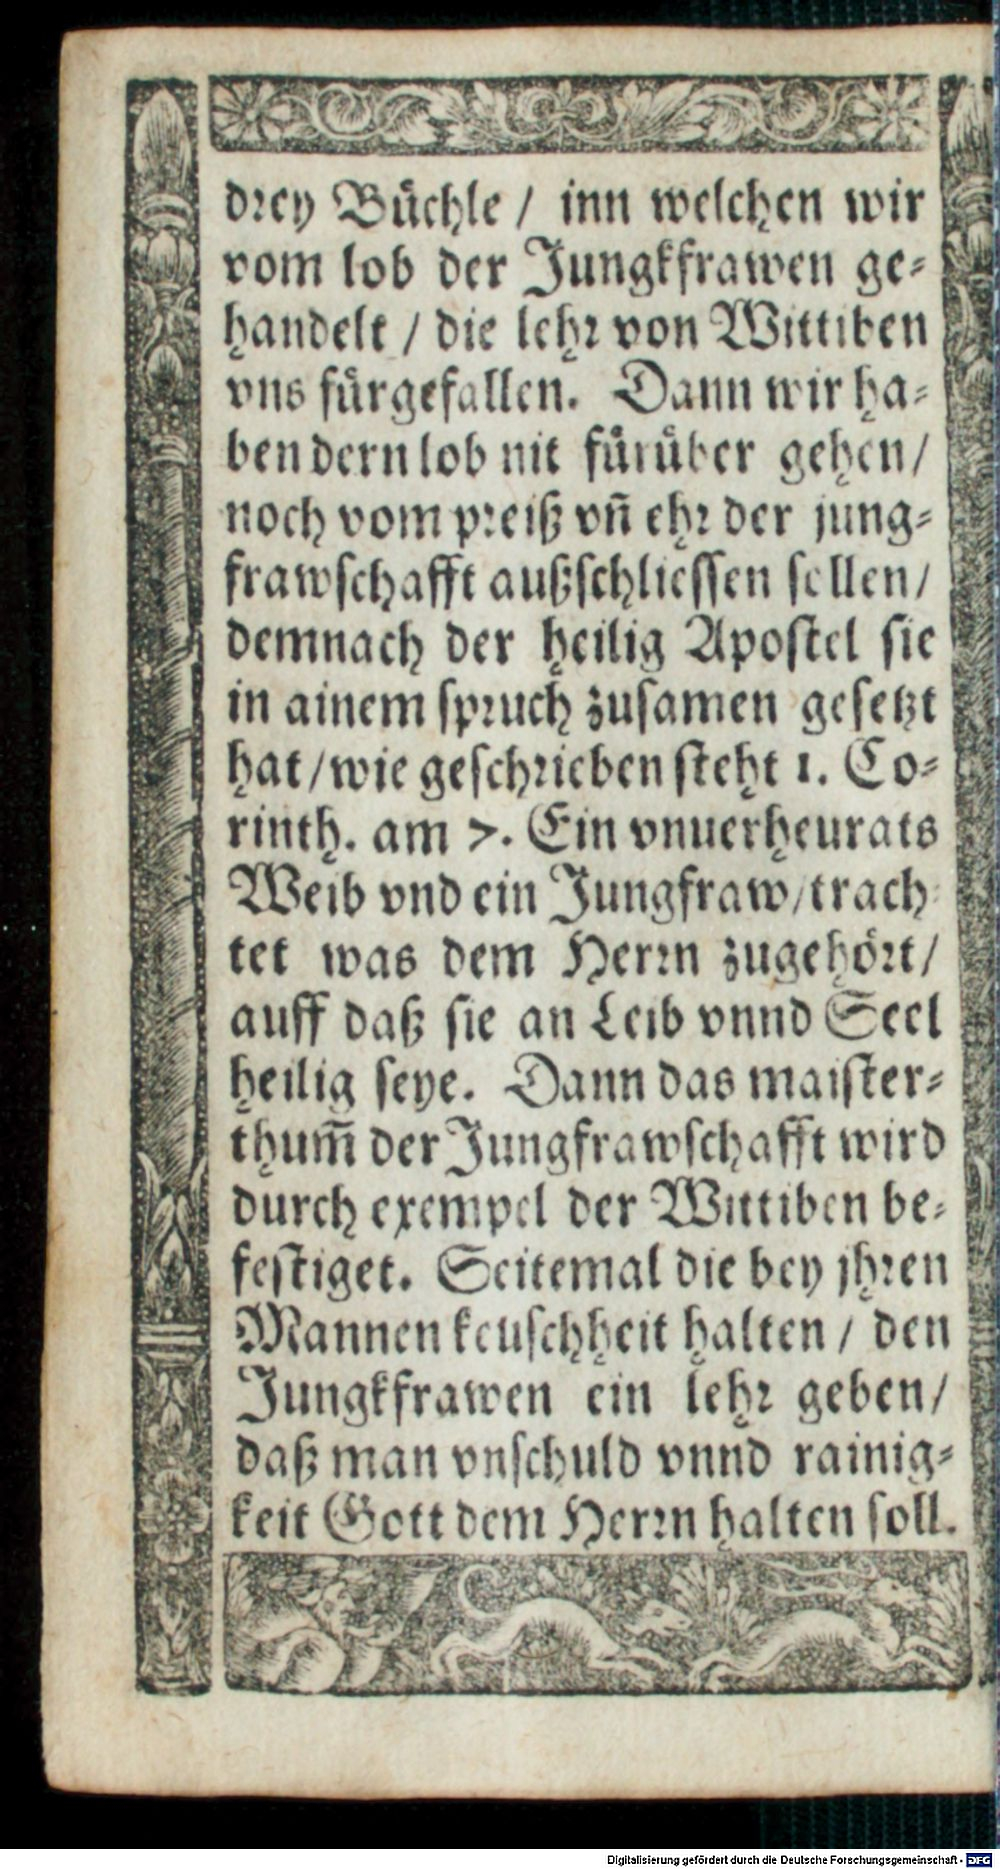 drey Büchle / inn welchen wir
vom lob der Jungkfrawen ge-
handelt / die lehr von Wittiben
vns fürgefallen. Dann wir ha-
ben dern lob nit fürüber gehen /
noch vom preiß vñ ehr der jung-
frawschafft außschliessen sollen /
demnach der heilig Apostel sie
in ainem spruch zusamen gesetzt
hat / wie geschrieben steht 1. Co-
rinth. am 7. Ein vnuerheurats
Weib vnd ein Jungfraw / trach-
tet was dem Herrn zugehört /
auff daß sie an Leib vnnd Seel
heilig seye. Dann das maister-
thum̃ der Jungfrawschafft wird
durch exempel der Wittiben be-
festiget. Seitemal die bey jhren
Mannen keuschheit halten / den
Jungkfrawen ein lehr geben /
daß man vnschuld vnnd rainig-
keit Gott dem Herrn halten soll.
Digitalisierung gefördert durch die Deutsche Forschungsgemeinschaft - DFG